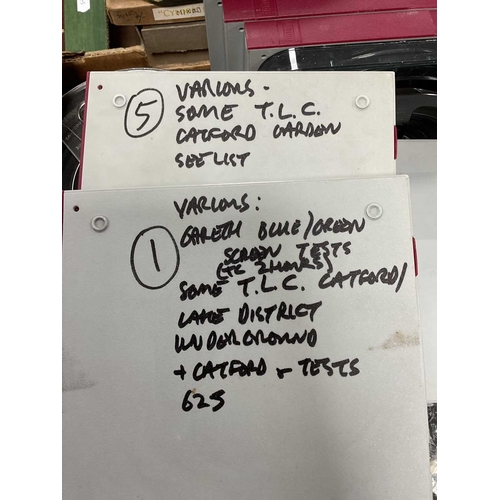 "CYMINAD
5
VARIOUS -
SOME T.L.C.
CATFORD GARDEN
SEE LIST
1
VARIOUS:
GARETH BLUE/GREEN
SCREEN TESTS
(TC 2 HOURS)
SOME T.L.C. CATFORD/
LAKE DISTRICT
UNDERGROUND
+ CATFORD + TESTS
625